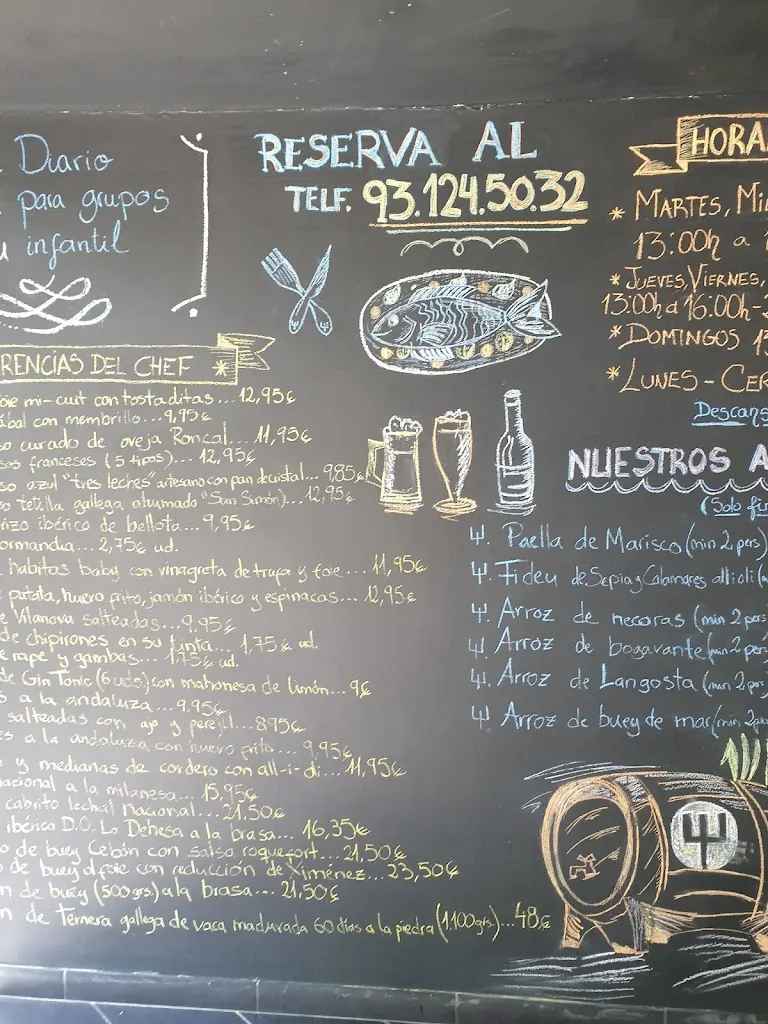 Diario
para grupos
infantil
RESERVA AL
TELF. 93.124.50.32
HORA
* MARTES, MI
13:00h a 1
* JUEVES, VIERNES,
13:00h a 16:00h -
* DOMINGOS 13
* LUNES - CER
Descans
RENCIAS DEL CHEF *
oie mi-cuit con tostaditas... 12,95€
con membrillo... 9,95€
so curado de oveja Roncal... 11,95€
sos franceses (5 tipos)... 12,95€
so azul "tres leches" artesano con pan de cristal... 9,85€
so tetilla gallega ahumado "San Simón)... 12,95€
rizo ibérico de bellota... 9,95€
ormandia... 2,75€ ud.
habitas baby con vinagreta de trufa y foie... 11,95€
patata, huevo frito, jamón ibérico y espinacas... 12,95€
e Vilanova salteadas... 9,95€
de chipirones en su tinta... 1,75€ ud.
e rape y gambas... 1,75€ ud.
de Gin Tonic (6 uds) con mahonesa de limón... 9€
s a la andaluza... 9,95€
salteadas con ajo y perejil... 8,95€
es a la andaluza con huevo frito... 9,95€
y medianas de cordero con all-i-oli... 11,95€
nacional a la milanesa... 15,95€
cabrito lechal nacional... 21,50€
ibérico D.O. La Dehesa a la brasa... 16,35€
o de buey Cebón con salsa roquefort... 21,50€
o de buey al foie con reducción de Ximénez... 23,50€
n de buey (500grs.) a la brasa... 21,50€
n de Ternera gallega de vaca madurada 60 días a la piedra (1.100grs)... 48€
NUESTROS A
(Solo fi
Paella de Marisco (min 2 pers)
Fideu de Sepia y Calamares all i oli (m
Arroz de necoras (min 2 pers
Arroz de bogavante (min 2 pe
Arroz de Langosta (min 2 per
Arroz de buey de mar (min 2 per